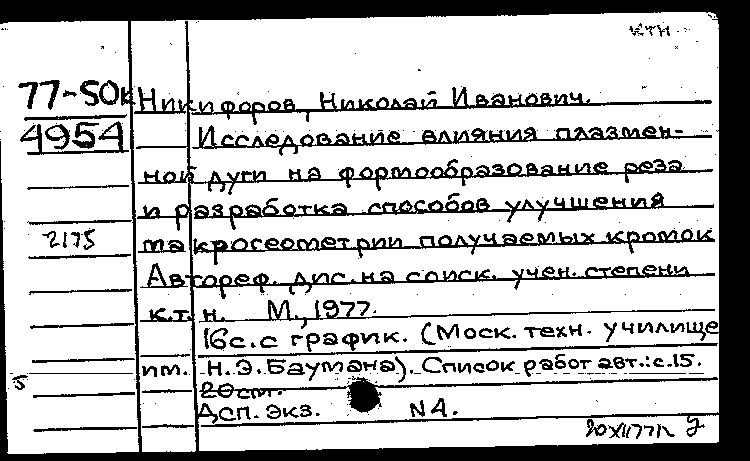 КТН
77-SOк Никифоров, Николай Иванович.
4954 Исследование влияния плазмен-
ной дуги на формообразование реза
и разработка способов улучшения
2175 макрогеометрии получаемых кромок
Автореф. дис. на соиск. учен. степени
к.т.н. М., 1977.
16с. с график. (Моск. техн. училище
им. Н.Э.Баумана). Список работ авт.: с.15.
5
20см.
Дсп. Экз. N4.